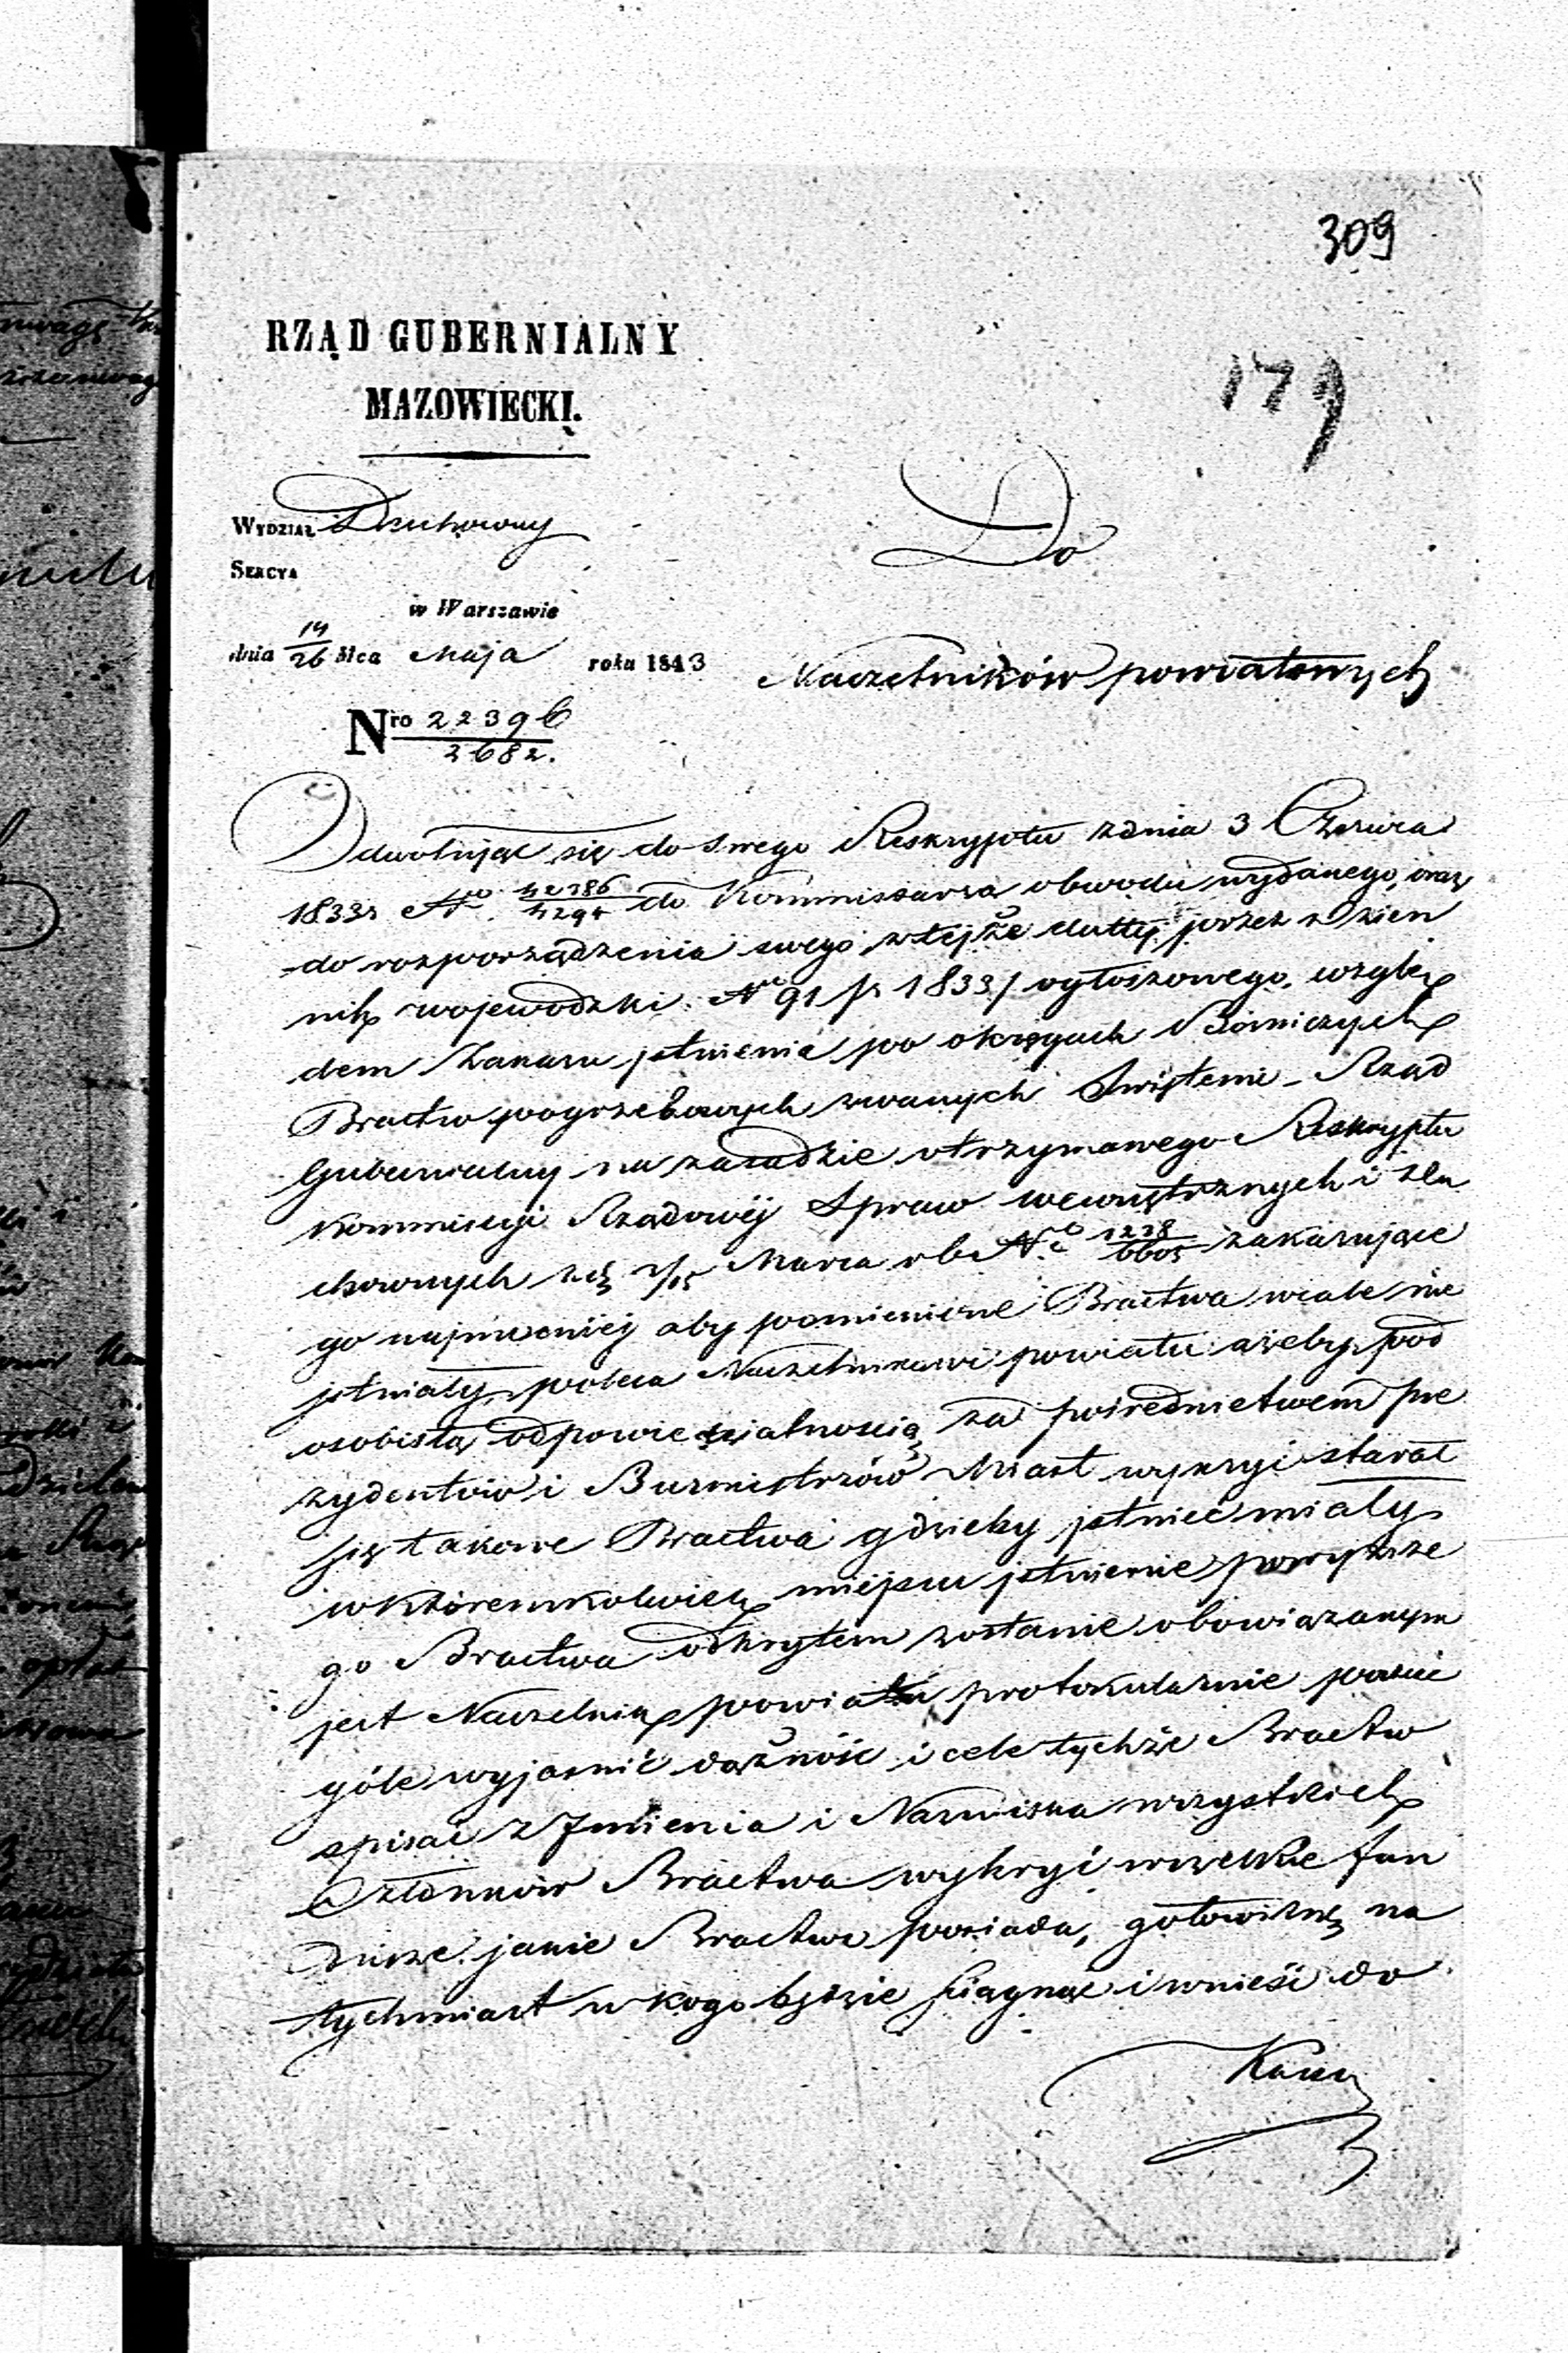 309
RZĄD GUBERNIALNY
MAZOWIECKI.
179
WYDZIAŁ Duchowny
SEKCYA
w Warszawie
dnia 14/26 Mca Maja roku 1843
Do
Naczelników powiatowych
Nro 22396/2682.
Odwołując się do swego Reskryptu z dnia 3 Czerwca
1833r No. 42386/4294 do Kommissarza obwodu wydanego, oraz
do rozporządzenia swego z tejże datty przez Dzien
nik wojewodzki No 91 /r 1833/ ogłoszonego, wzglę
dem Zakazu jstnienia po okręgach Bóżniczych
Bractw pogrzebowych zwanych Świętemi – Rząd
Gubernialny na zasadzie otrzymanego Reskryptu
Kommissyi Rządowéj Spraw wewnętrznych i Du
chownych z d. 3/15 Marca rb No 1238/6605 zakazujące
go najmocniéj aby pomienione Bractwa wcale nie
jstniały, poleca Naczelnikowi powiatu ażeby pod
osobistą odpowiedzialnością za pośrednictwem pre
zydentów i Burmistrzów Miast wykryć starał
się takowe Bractwa gdzieby jstnieć miały
w którémkolwiek miejscu jstnienie powyższe
go Bractwa odkrytem zostanie obowiązanym
jest Naczelnik powiatu protokularnie
góle wyjasnić dążność i cele tychże Bractw
spisać z Jmienia i Nazwiska wszystkich
Członków Bractwa wykryć wszelkie fun
dusze jakie Bractwo posiada, gotowiznę na
tychmiast u kogo będzie ściągnąć i wnieść do
Kassy